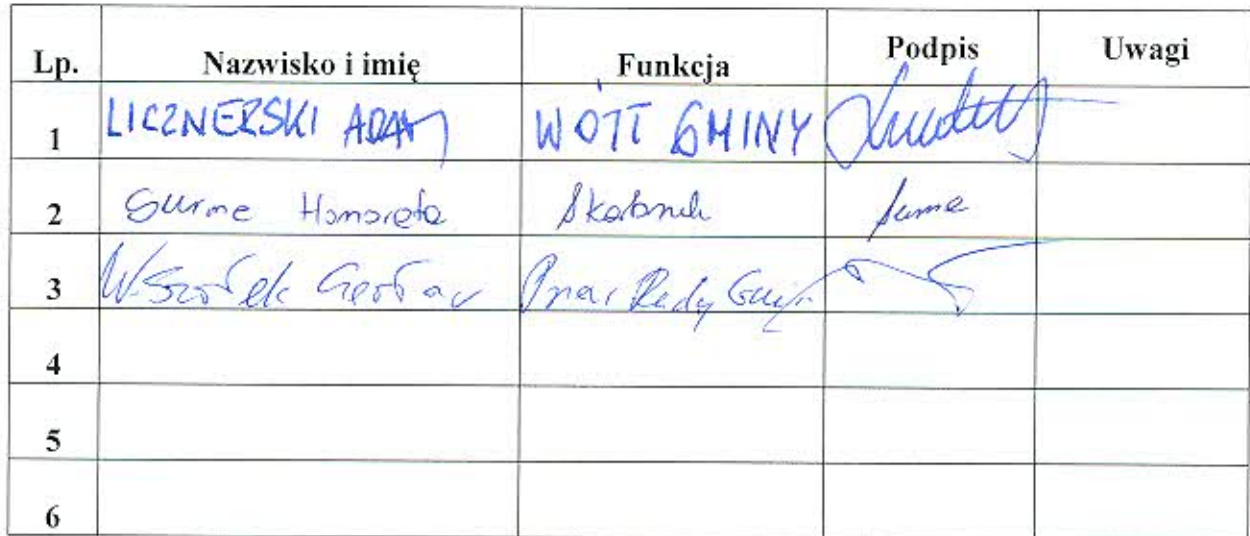 Lp. Nazwisko i imię Funkcja Podpis Uwagi
1 LICZNERSKI ADAM WÓJT GMINY
2 Surma Honorata Skarbnik Surma
3 Wszołek Rady
4
5
6